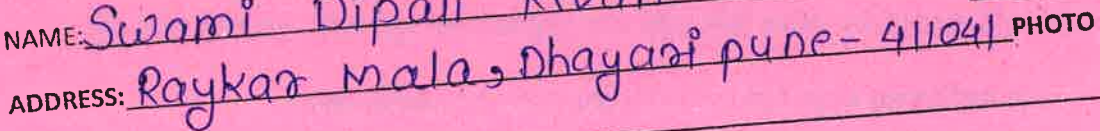 NAME: Swami Dipali
ADDRESS: Raykar Mala, Dhayari pune - 411041 PHOTO